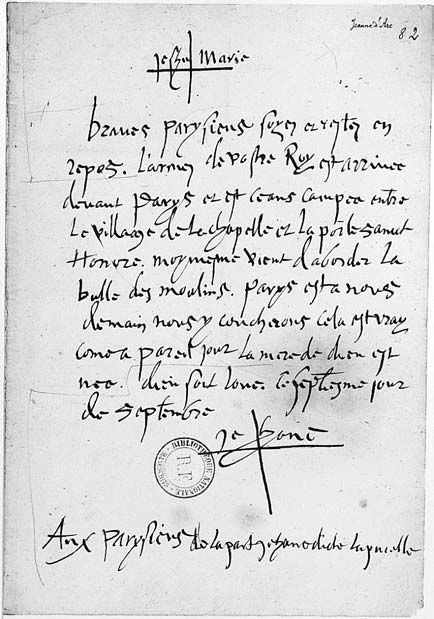 Jeanne d'Arc
82
Jesus Marie
braves parysiens soyez et restez en
repos. l'armee de vostre Roy est arrivee
devant parys et est ceans campee entre
Le village de Lachapelle et La porte sainct
Honore. moy mesme vient d'aborder La
butte des moulins. parys est a nous
demain nous y coucherons cela est vray
come a pareil jour La mere de dieu est
nee. dieu soit loue. ce septiesme jour
de septembre
BIBLIOTHEQUE NATIONALE
R.F.
Aux parysiens de La part Jehane dicte La pucelle